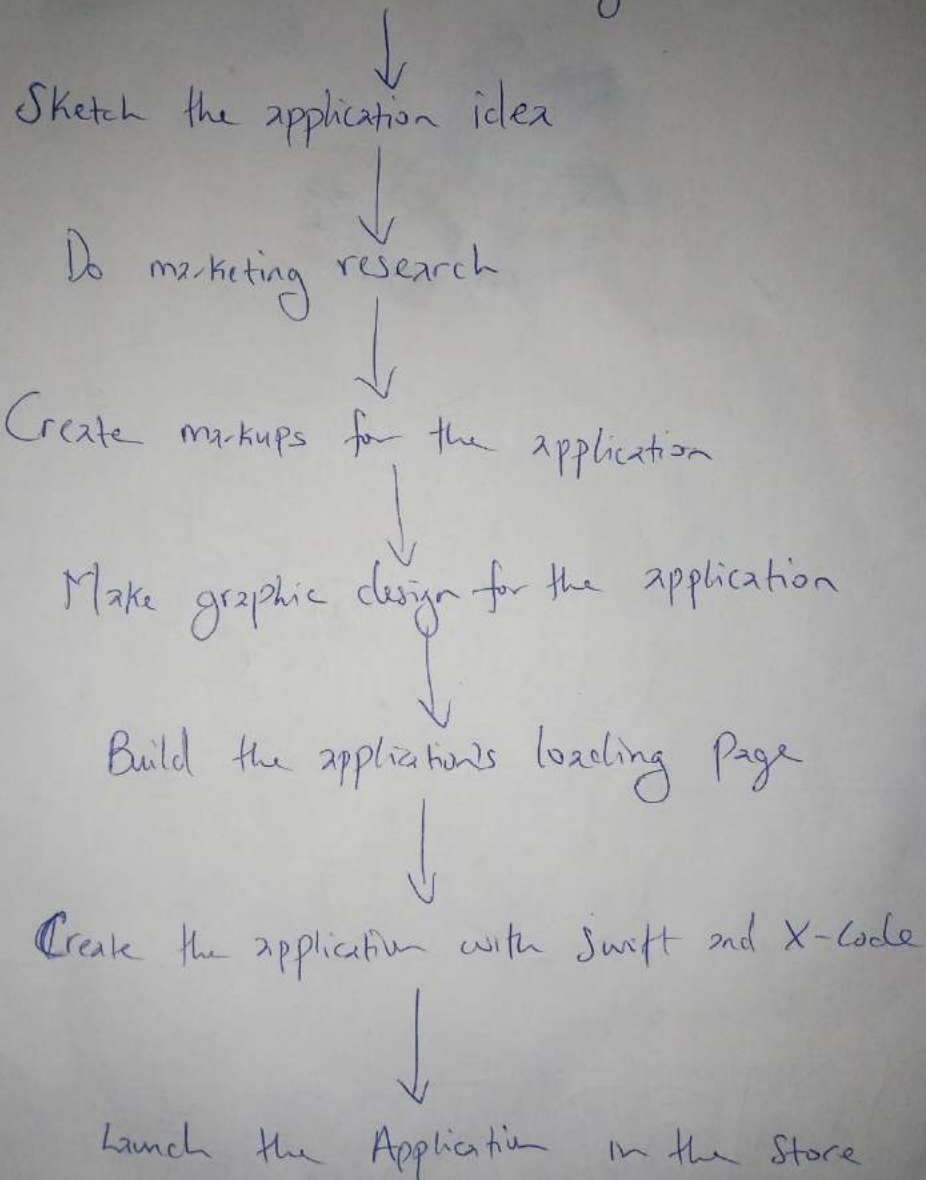 Sketch the application idea
Do marketing research
Create markups for the application
Make graphic design for the application
Build the application's loading Page
Create the application with Swift and X-Code
Launch the Application in the Store